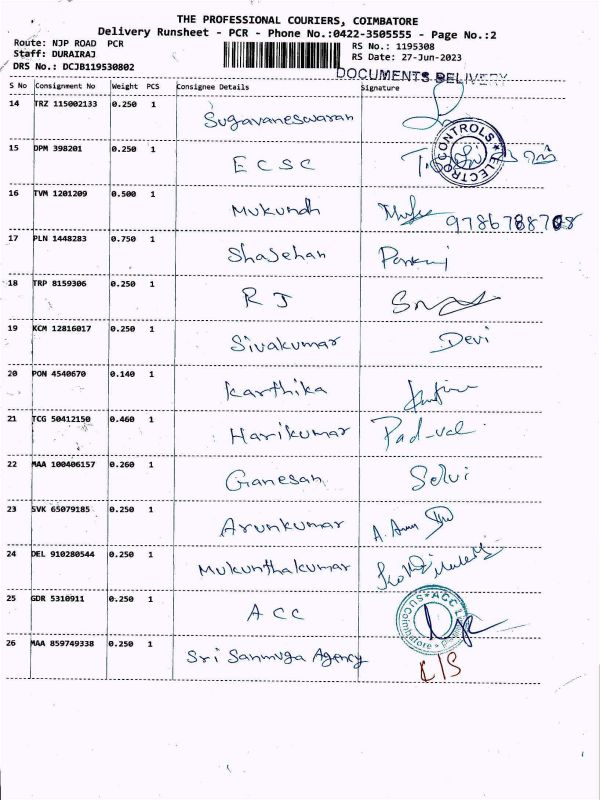 THE PROFESSIONAL COURIERS, COIMBATORE
Delivery Runsheet - PCR - Phone No.:0422-3505555 - Page No.:2
Route: NJP ROAD PCR
Staff: DURAIRAJ
DRS No.: DCJB119530802
RS No.: 1195308
RS Date: 27-Jun-2023
DOCUMENTS DELIVERY
S No Consignment No Weight PCS Consignee Details Signature
14 TRZ 115002133 0.250 1 Sugavaneswaran
15 DPM 398201 0.250 1 ECSC
ELECTRO CONTROLS
16 TVM 1201209 0.500 1 Mukundh 9786788708
17 PLN 1448283 0.750 1 Shajehan
18 TRP 8159306 0.250 1 RJ
19 KCM 12816017 0.250 1 Sivakumar Devi
20 PON 4540670 0.140 1 Karthika
21 TCG 50412150 0.460 1 Harikumar
22 MAA 100406157 0.260 1 Ganesan Selvi
23 SVK 65079185 0.250 1 Arunkumar
24 DEL 910280544 0.250 1 Mukunthakumar
25 GDR 5310911 0.250 1 ACC
ACC Coimbatore
26 MAA 859749338 0.250 1 Sri Sanmuga Agency L/S